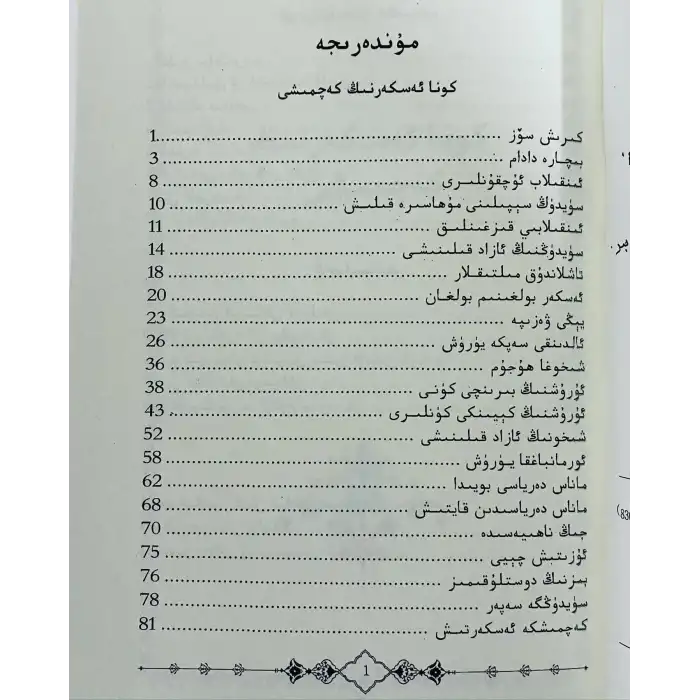 مۇندەرىجە
كونا ئەسكەرنىڭ كەچمىشى
كىرىش سۆز ........ 1
بىچارە دادام ........ 3
ئىنقىلاب ئۇچقۇنلىرى ........ 8
سۈيدۈڭ سېپىلىنى مۇھاسىرە قىلىش ........ 10
ئىنقىلابىي قىزغىنلىق ........ 11
سۈيدۈڭنىڭ ئازاد قىلىنىشى ........ 14
تاشلاندۇق مىلتىقلار ........ 18
ئەسكەر بولغىنىم بولغان ........ 20
يېڭى ۋەزىپە ........ 23
ئالدىنقى سەپكە يۈرۈش ........ 26
شىخوغا ھۇجۇم ........ 36
ئۇرۇشنىڭ بىرىنچى كۈنى ........ 38
ئۇرۇشنىڭ كېيىنكى كۈنلىرى ........ 43
شىخونىڭ ئازاد قىلىنىشى ........ 52
ئورمانباغقا يۈرۈش ........ 58
ماناس دەرياسى بويىدا ........ 62
ماناس دەرياسىدىن قايتىش ........ 68
جىڭ ناھىيەسىدە ........ 70
ئۇزىتىش چېيى ........ 75
بىزنىڭ دوستلۇقىمىز ........ 76
سۈيدۈڭگە سەپەر ........ 78
كەچمىشكە ئەسكەرتىش ........ 81
1